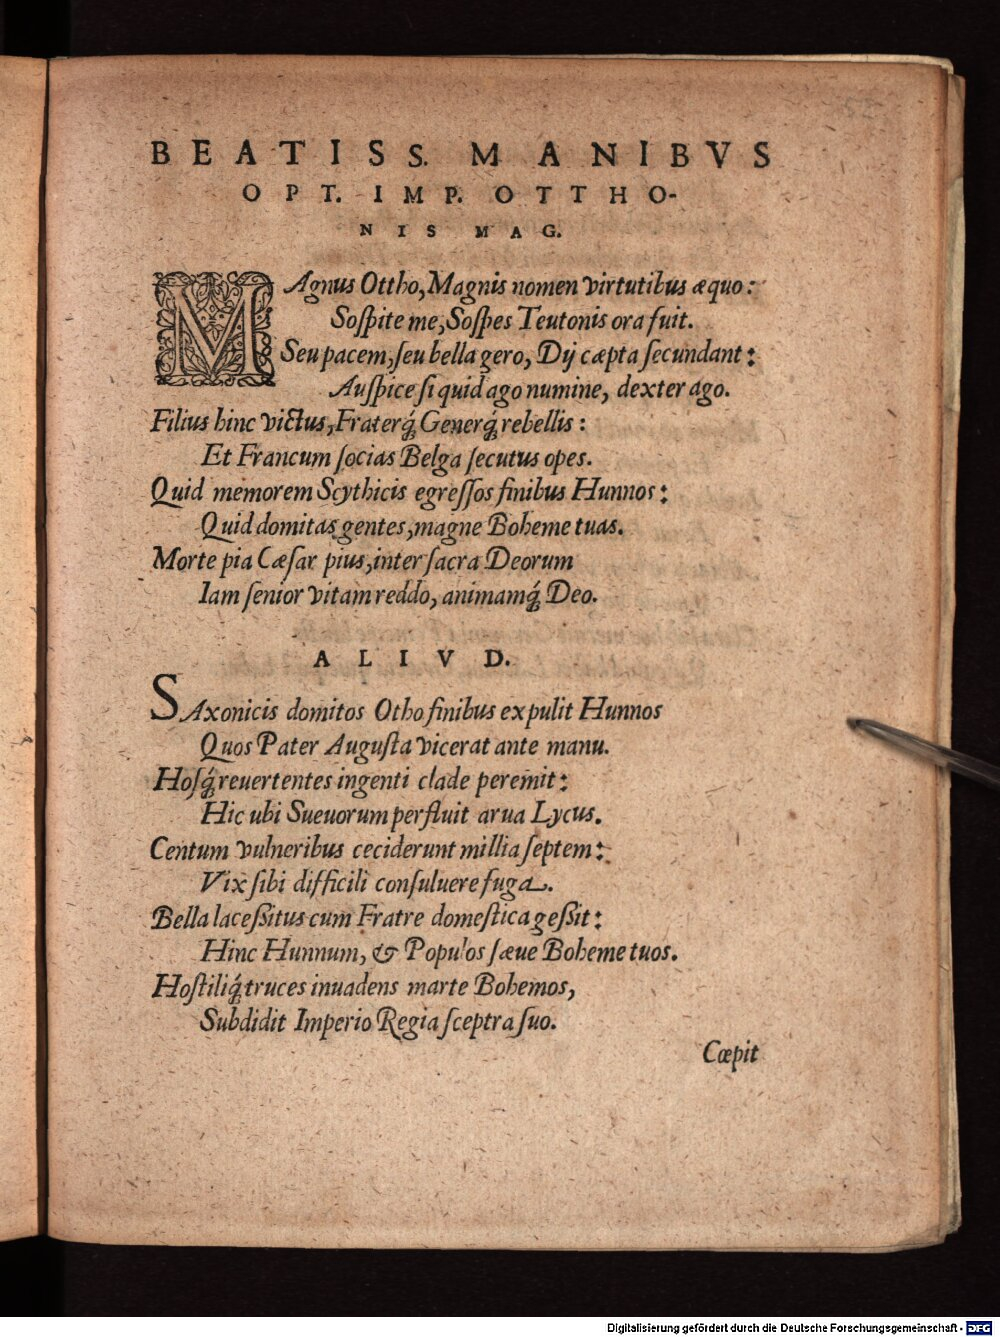 BEATISS. MANIBVS
OPT. IMP. OTTHO-
NIS MAG.
MAgnus Ottho, Magnis nomen virtutibus æquo:
Soſpite me, Soſpes Teutonis ora fuit.
Seu pacem, ſeu bella gero, Dij cæpta ſecundant:
Auſpice ſi quid ago numine, dexter ago.
Filius hinc victus, Fraterq́; Generq́; rebellis:
Et Francum ſocias Belga ſecutus opes.
Quid memorem Scythicis egreſſos finibus Hunnos:
Quid domitas gentes, magne Boheme tuas.
Morte pia Cæſar pius, inter ſacra Deorum
Iam ſenior vitam reddo, animamq́; Deo.
ALIVD.
SAxonicis domitos Otho finibus expulit Hunnos
Quos Pater Auguſta vicerat ante manu.
Hoſq́; reuertentes ingenti clade peremit:
Hic ubi Sueuorum perfluit arua Lycus.
Centum vulneribus ceciderunt millia ſeptem:
Vix ſibi difficili conſuluere fuga.
Bella laceſsitus cum Fratre domeſtica geſsit:
Hinc Hunnum, & Populos ſæue Boheme tuos.
Hoſtiliq́; truces inuadens marte Bohemos,
Subdidit Imperio Regia ſceptra ſuo.
Cœpit
Digitalisierung gefördert durch die Deutsche Forschungsgemeinschaft - DFG